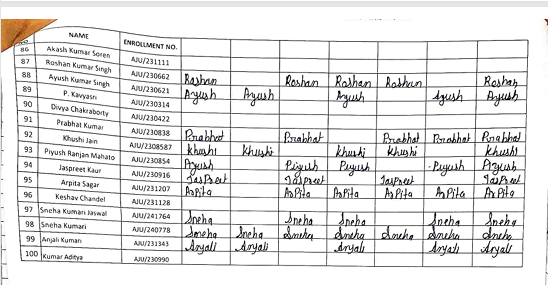 NAME ENROLLMENT NO.
86 Akash Kumar Soren AJU/231111
87 Roshan Kumar Singh AJU/230662 Roshan Roshan Roshan Roshan Roshan
88 Ayush Kumar Singh AJU/230621 Ayush Ayush Ayush Ayush Ayush
89 P. Kavyasri AJU/230314
90 Divya Chakraborty AJU/230422
91 Prabhat Kumar AJU/230838 Prabhat Prabhat Prabhat Prabhat Prabhat
92 Khushi Jain AJU/2308587 Khushi Khushi Khushi Khushi Khushi
93 Piyush Ranjan Mahato AJU/230854 Piyush Piyush Piyush Piyush Piyush
94 Jaspreet Kaur AJU/230916 Jaspreet Jaspreet Jaspreet Jaspreet
95 Arpita Sagar AJU/231207 ArPita ArPita ArPita ArPita ArPita ArPita
96 Keshav Chandel AJU/231128
97 Sneha Kumari Jaswal AJU/241764 Sneha Sneha Sneha Sneha Sneha
98 Sneha Kumari AJU/240778 Sneha Sneha Sneha Sneha Sneha Sneha Sneha
99 Anjali Kumari AJU/231343 Anjali Anjali Anjali Anjali Anjali
100 Kumar Aditya AJU/230990